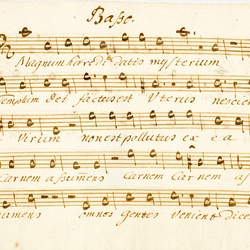 Basso.
Magnum hæreditatis mysterium
templum Dei factus est Uterus nescien
Virum non est pollutus ex ea
Carnem assumens Carnem Carnem as
sumens omnes gentes venient dicen